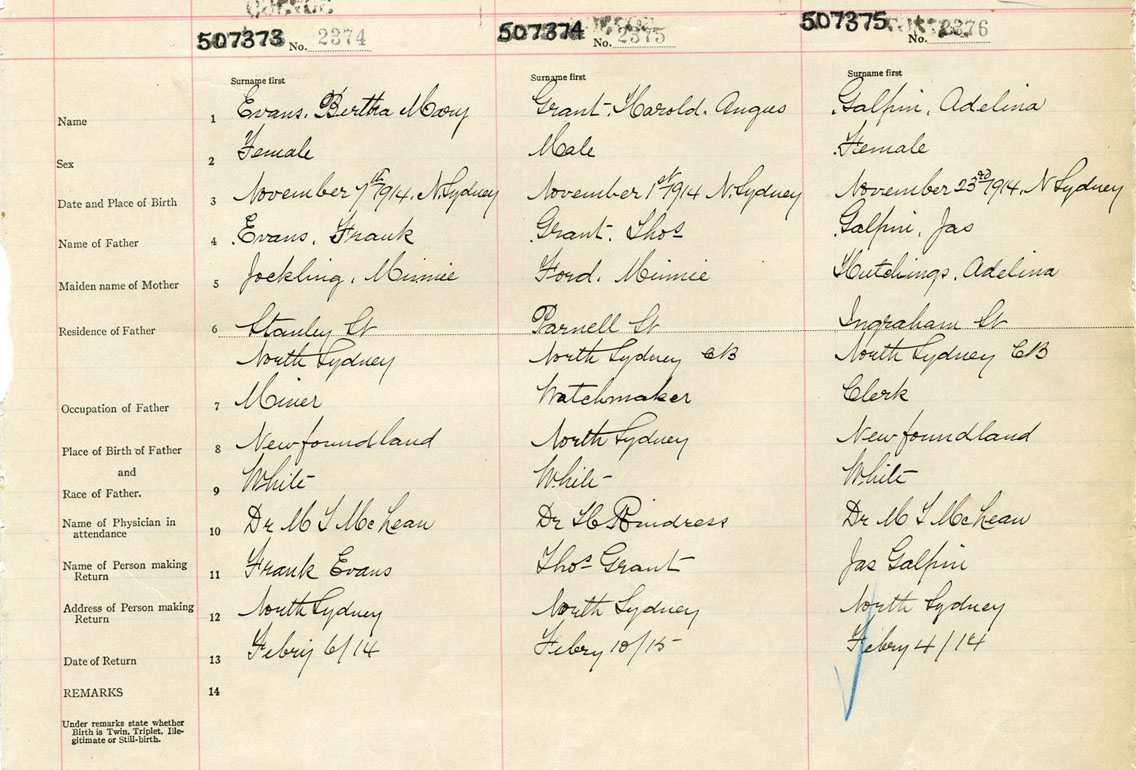 507373 No. 2374
507374 No. 2375
507375 No. 2376
Surname first Surname first Surname first
Name 1 Evans, Bertha Mary Grant, Harold, Angus Galpin, Adelina
Sex 2 Female Male Female
Date and Place of Birth 3 November 7th 1914, N. Sydney November 1st 1914 N. Sydney November 23rd 1914, N Sydney
Name of Father 4 Evans, Frank Grant, Thos Galpin, Jas
Maiden name of Mother 5 Jockling, Minnie Ford, Minnie Hutchings, Adelina
Residence of Father 6 Stanley St Parnell St Ingraham St
North Sydney North Sydney CB North Sydney CB
Occupation of Father 7 Miner Watchmaker Clerk
Place of Birth of Father 8 Newfoundland North Sydney Newfoundland
and
Race of Father. 9 White White White
Name of Physician in
attendance 10 Dr M McLean Dr Dr M McLean
Name of Person making
Return 11 Frank Evans Thos Grant Jas Galpin
Address of Person making
Return 12 North Sydney North Sydney North Sydney
Date of Return 13 Febry 6/14 Febry 10/15 Febry 4/14
REMARKS 14
Under remarks state whether
Birth is Twin, Triplet, Ille-
gitimate or Still-birth.